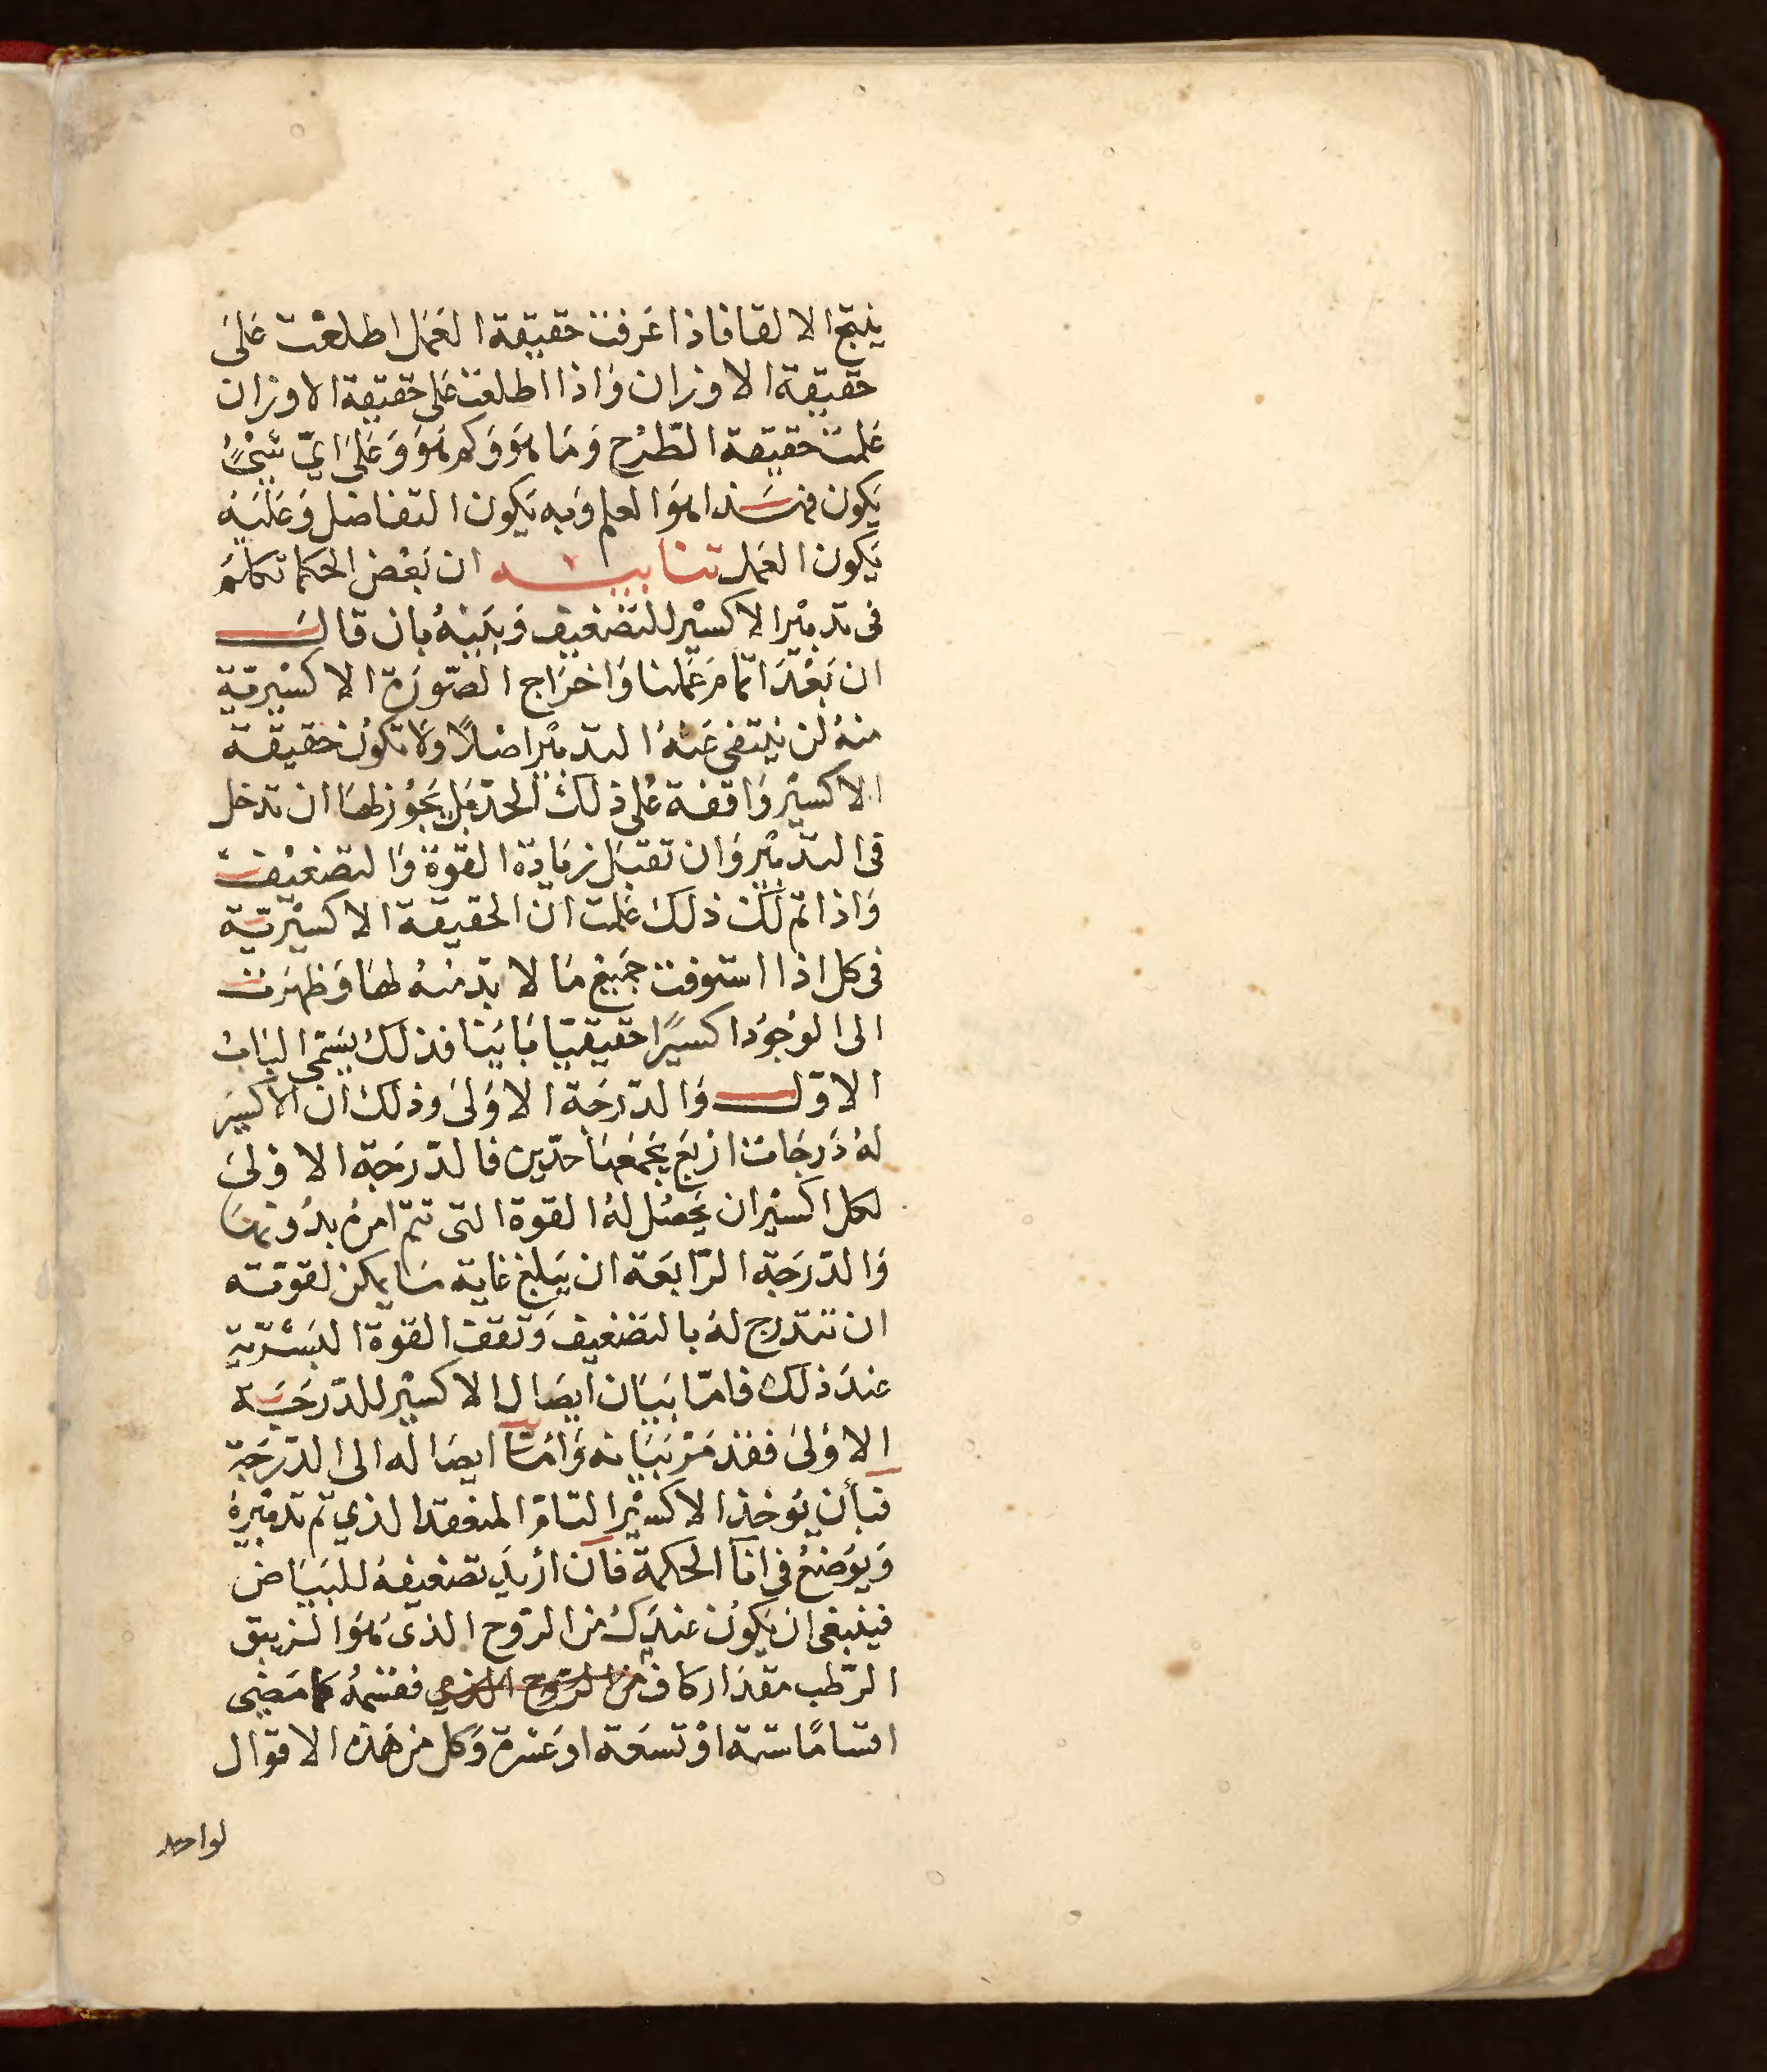 ينتج الالقا فاذا عَرفت حقيقة العَمل اطلعْت عَلىَ
حقيقة الاوزان وَاذا اطلعت عَلى حقيقة الاوزان
عَلمت حقيقة الطّرْح وَمَا هوَ وَكم هوَ وَعَلىَ ايّ شيْءٍ
يَكون فهَـذا هوَ العلم وَبه يَكون التفاضل وَعَليَه
يَكون العَمل تنابيـه ان بَعْض الحكما تكلمَ
فى تدبيْر الاكسيْر للتضعيف وَبَينهُ بان قالَ
ان بَعْدَ اتمَامِ عَملنا وَاخرَاج الصّورَة الاكسيْريّة
منهُ لن ينتفى عَنهُ التدبيْر اصْلاً وَلا تكوُن حَقيقة
الاكسيْر وَاقفة عْلى ذلك الحدّ بَل يَجوُز لهَا ان تدخل
فى التدْبير وَان تقبَل زيَادة القوة وَالتضعيْف
وَاذا تم لك ذلك عَلمت ان الحقيقة الاكسيْريّة
فى كل اذا استوفت جَميْع مَا لا بدّ منهُ لهَا وَظهرَت
الى الوُجوُد اكسيرًا حقيقيّا بَايّنا فذلك يسَمّى البَابُ
الاوّل وَالدّرجَة الاوَلىَ وذلك ان الاكسير
لهُ دَرجَات ارْبَع يَجمَعهَا حدّين فالدّرَجَة الاوْلىَ
لكل اكسيْر ان يَحصُل لهُ القوة التى تتمّ امرهُ بدُونهَا
وَالدّرَجَة الرّابعَة ان يَبلغ غاية مَا يمكن لقوته
ان تتدرج لهُ بالتضعيف وَتقف القوة البَشَريّة
عندَ ذلك فامّا بَيَان ايصَال الاكسيْر للدّرَجَـة
الاوْلىَ فقدْ مَرّ بَيَانه وَامّا ايصَاله الى الدّرَجَة
فبأن يُؤخذ الاكسيْر التام المنعقد الذي تم تدْبيْرهُ
وَيوُضعُ فى انآ الحكمة فان ارُيدَ تضعيفهُ للبيَاض
فينبغى ان يَكوُن عندَكَ من الرّوح الذى هوَ الزيبق
الرّطب مقدَار كاف من الرّوح الذي فقسّمهُ كمَا مَضىَ
اقسامًا ستة اوْ تسعَة اوعَشرة وَكل من هَذه الاقوال
لواحد